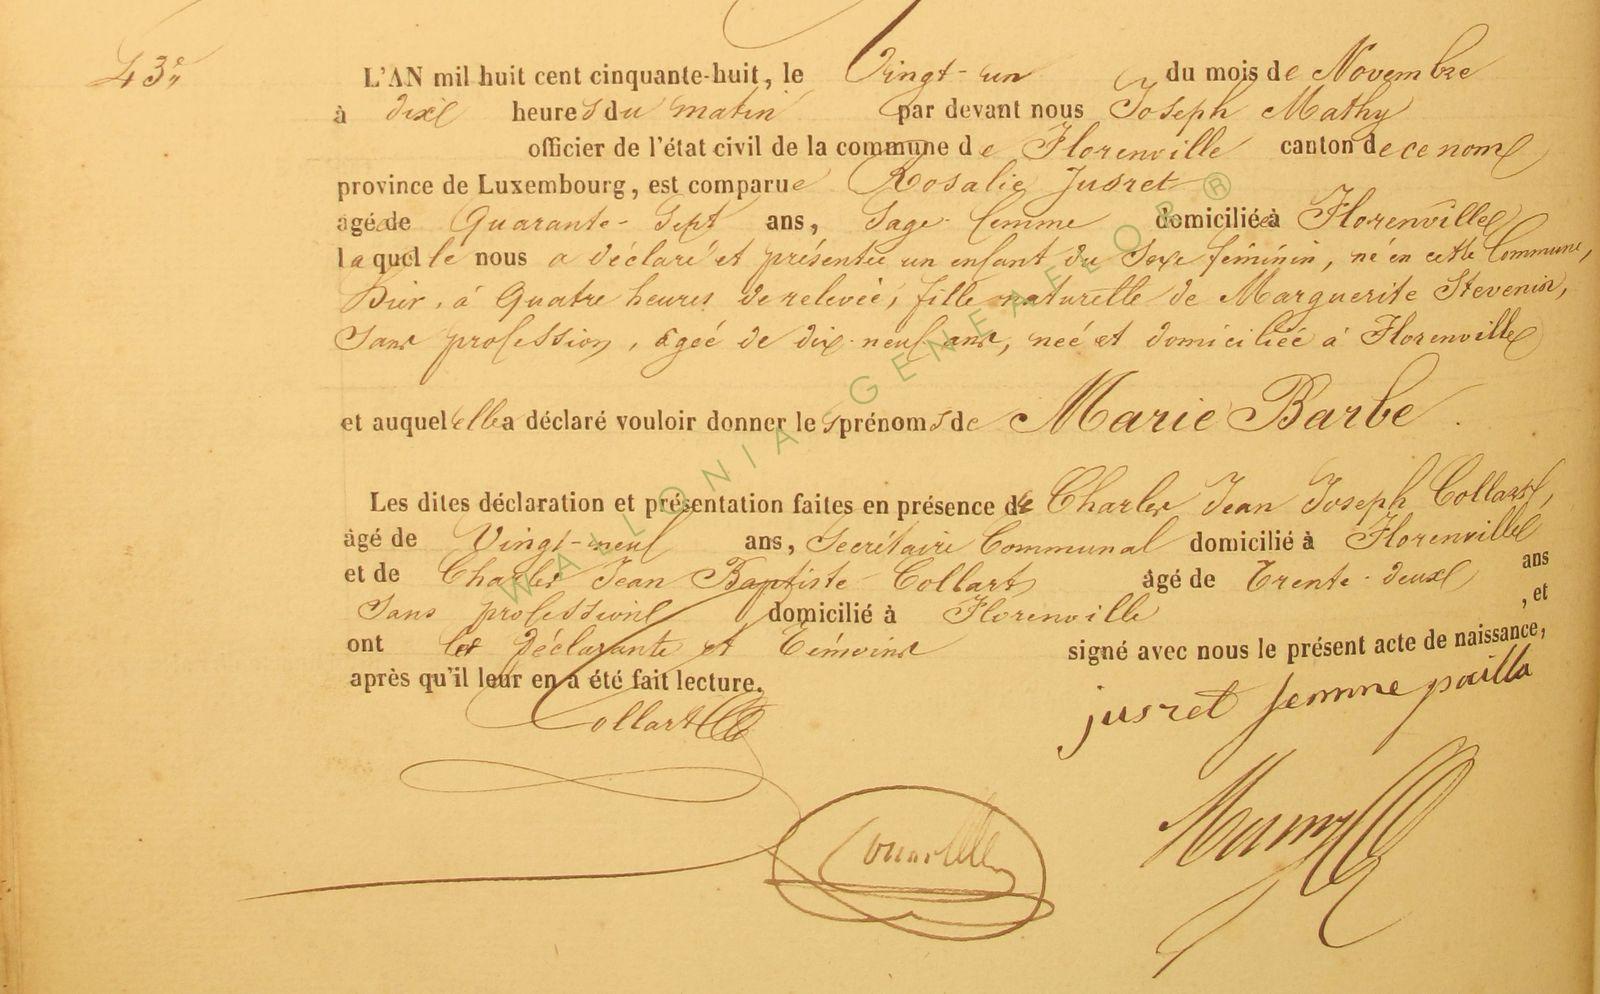 43e
L'AN mil huit cent cinquante-huit, le Vingt-un du mois de Novembre
à dix heures du matin par devant nous Joseph Mathy
officier de l'état civil de la commune de Florenville canton de ce nom
province de Luxembourg, est comparue Rosalie Jusret
âgée de Quarante-Sept ans, Sage-femme domiciliée à Florenville
laquelle nous a déclaré et présentée un enfant du Sexe féminin, né en cette Commune,
hier, à Quatre heures de relevée, fille naturelle de Marguerite Stevenin,
Sans profession, âgée de dix-neuf ans, née et domiciliée à Florenville
et auquel elle a déclaré vouloir donner les prénoms de Marie Barbe.
Les dites déclaration et présentation faites en présence de Charles Jean Joseph Collart,
âgé de Vingt-neuf ans, Secrétaire Communal domicilié à Florenville
et de Charles Jean Baptiste Collart âgé de Trente-deux ans
Sans profession domicilié à Florenville, et
ont les déclarante et Témoins signé avec nous le présent acte de naissance,
après qu'il leur en a été fait lecture.
Collart
jusret femme
WALLONIA GENEAFLOR ®